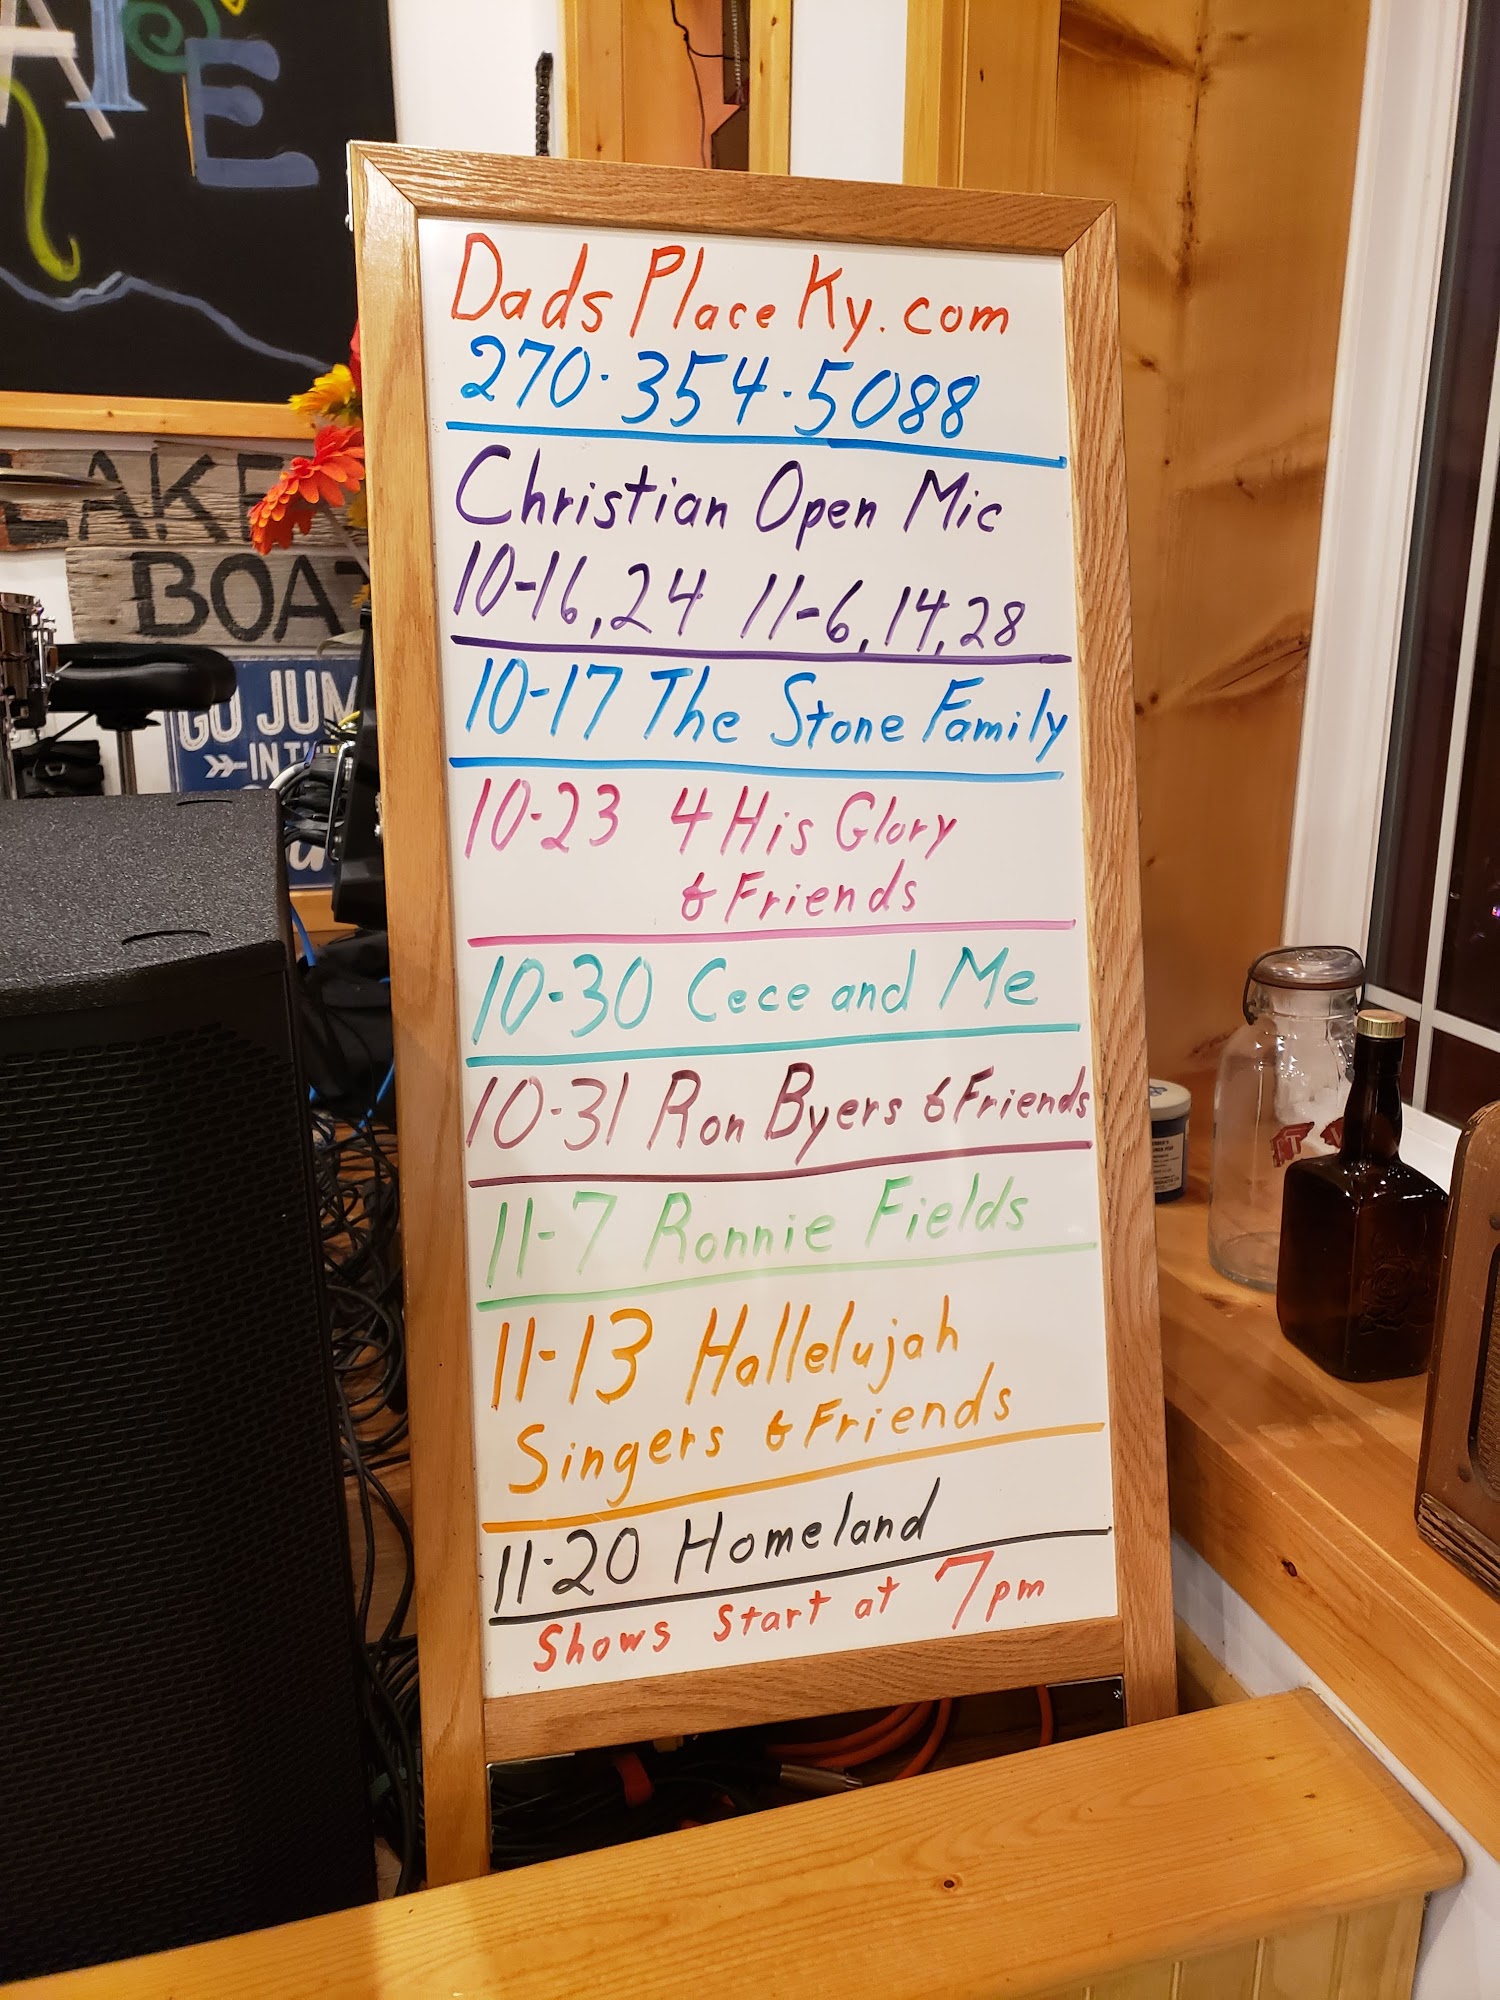 APE
LAKE
BOAT
GO JUM
IN TH
Dads Place Ky.com
270-354-5088
Christian Open Mic
10-16,24 11-6,14,28
10-17 The Stone Family
10-23 4 His Glory
& Friends
10-30 Cece and Me
10-31 Ron Byers & Friends
11-7 Ronnie Fields
11-13 Hallelujah
Singers & Friends
11-20 Homeland
Shows Start at 7pm